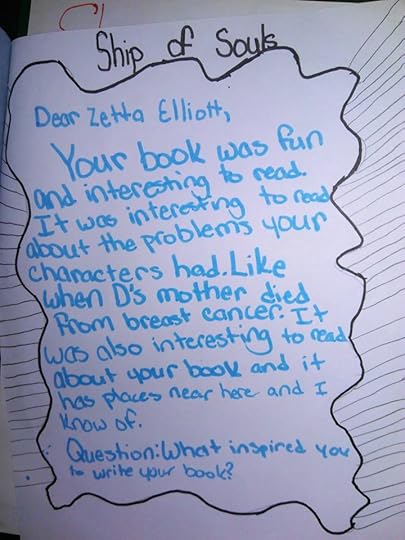 Ship of Souls
Dear Zetta Elliott,
Your book was fun
and interesting to read.
It was interesting to read
about the problems your
characters had. Like
when D's mother died
from breast cancer. It
was also interesting to read
about your book and it
has places near here and I
know of.
Question: What inspired you
to write your book?